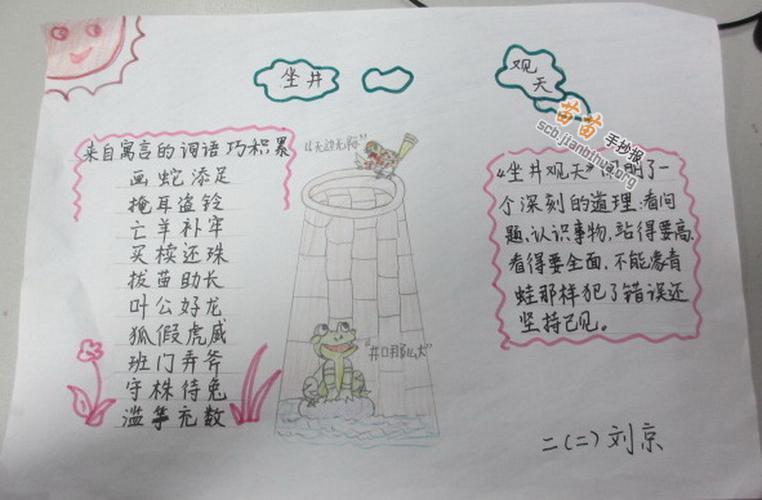 坐井
观
天
苗苗手抄报
scb.jianbihua.org
来自寓言的词语巧积累
画蛇添足
掩耳盗铃
亡羊补牢
买椟还珠
拔苗助长
叶公好龙
狐假虎威
班门弄斧
守株待兔
滥竽充数
“无边无际”
“井口那么大”
“坐井观天”明了一
个深刻的道理:看问
题、认识事物,站得要高,
看得要全面,不能像青
蛙那样犯了错误还
坚持己见。
二(二)刘京